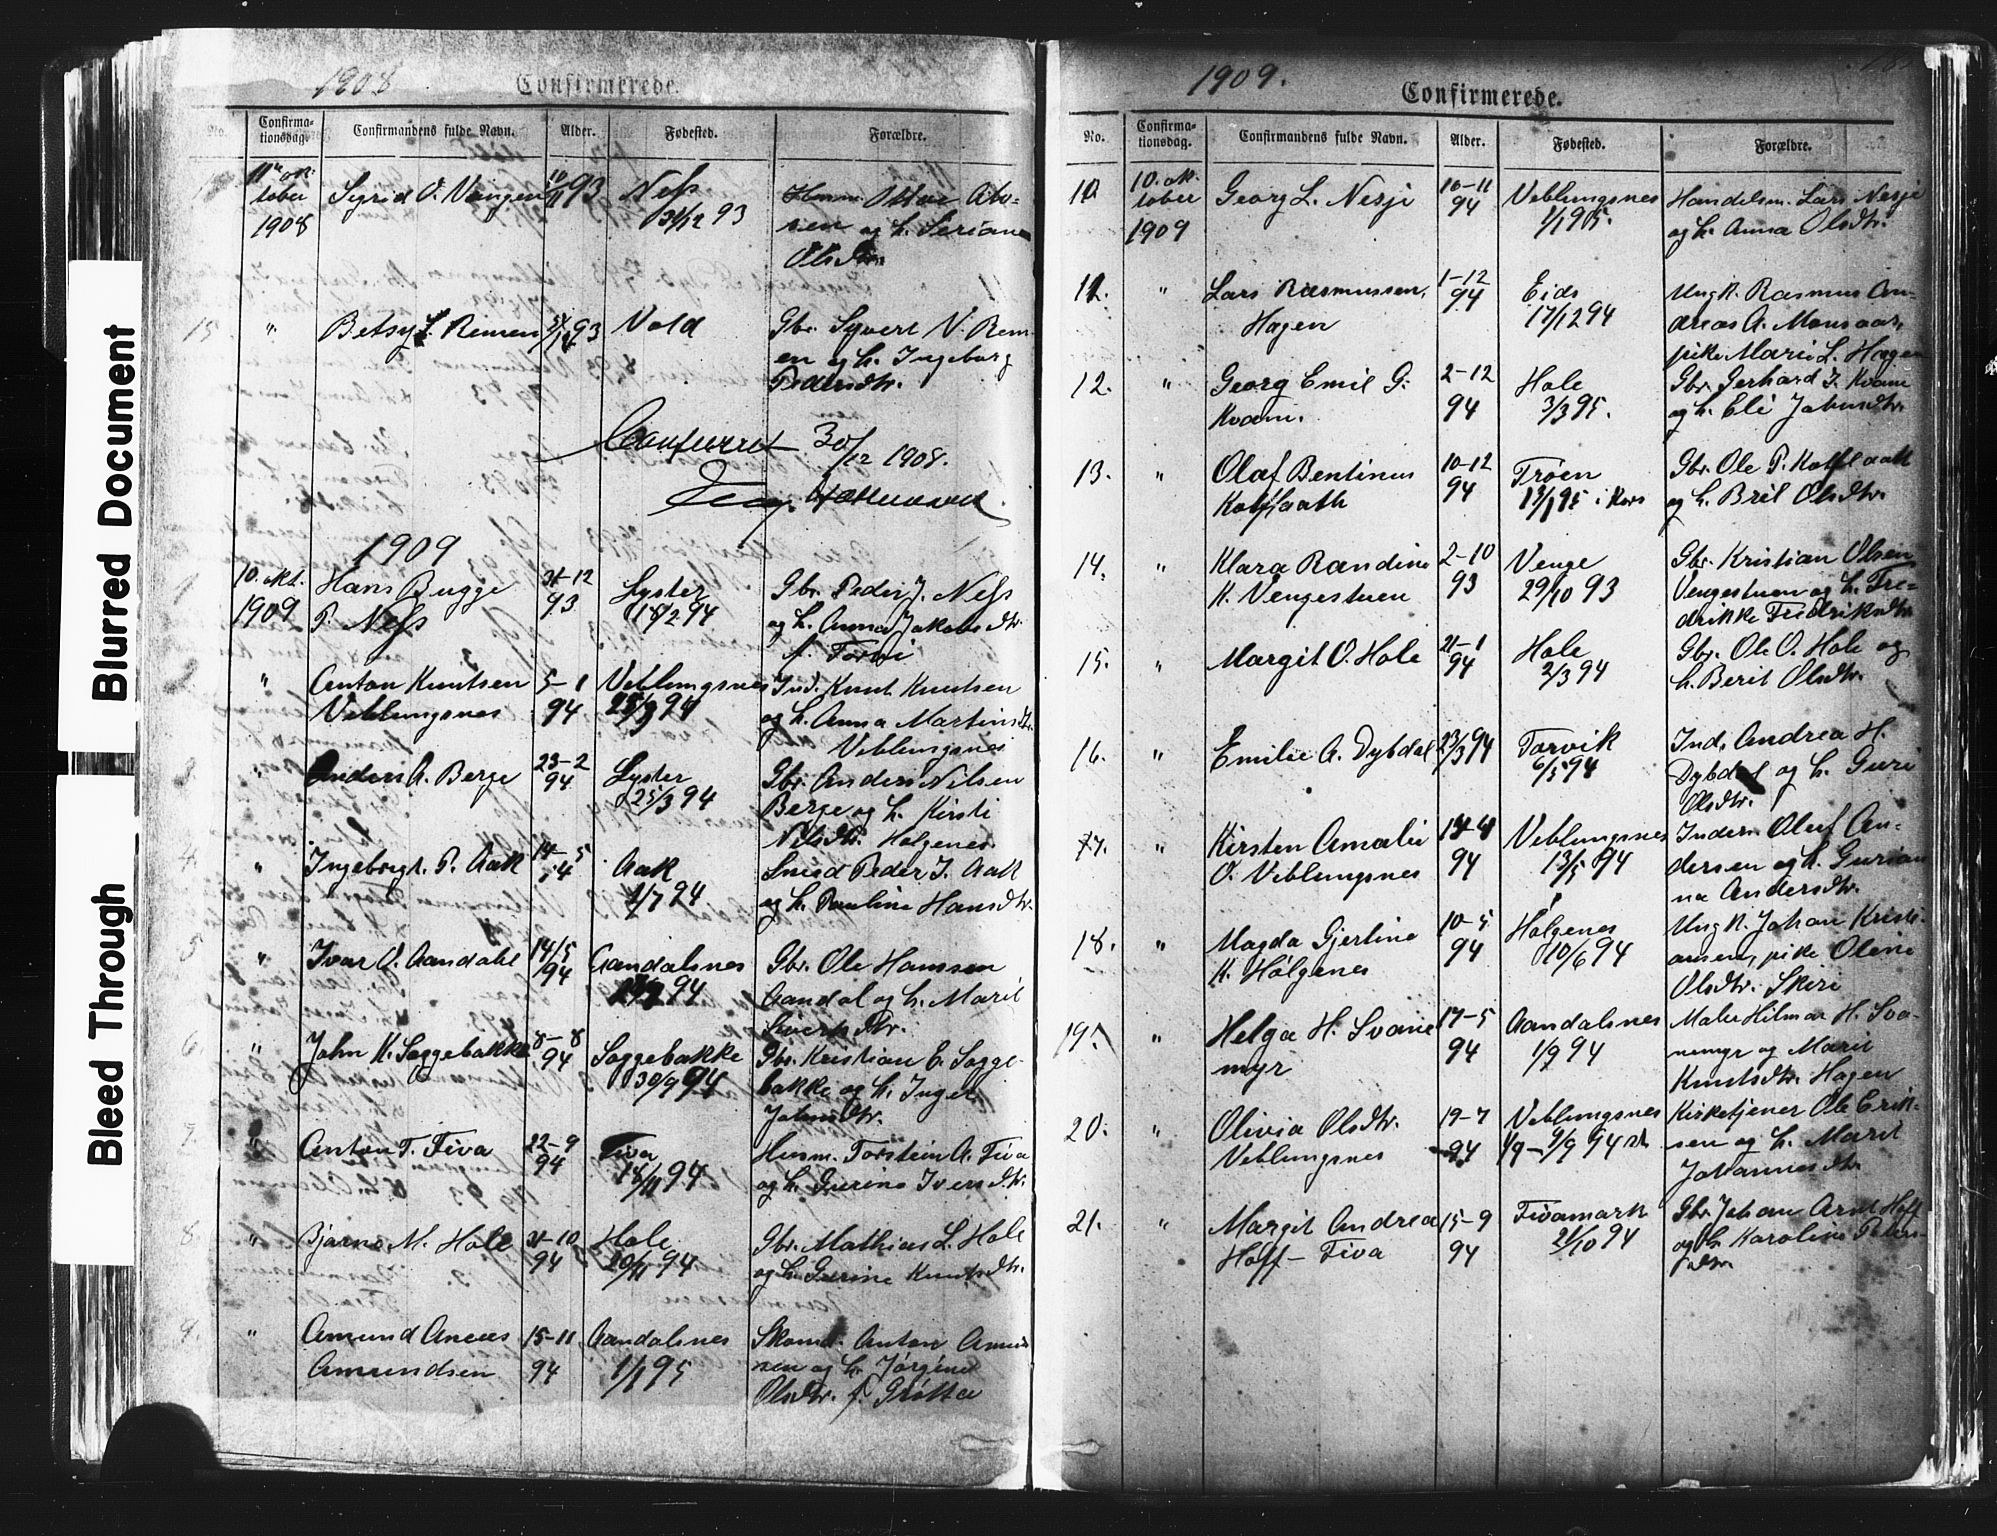 Blurred Document
Bleed Through
1908
Confirmerede.
No.
Confirma-
tionsdag.
Confirmandens fulde Navn.
Alder.
Fødested.
Forældre.
11te ok-
tober
1908
Sigrid O. Vengen
93
Ness
31/12 93
og h. Seriane
Olsdtr.
15
"
Betsy S. Remen
93
Vold
Gbr. Syvert N. Rem-
en og h. Ingeborg
Pedersdtr.
Confereret 30/12 1908.
1909
1
10. okt.
1909
Hans Bugge
P. Ness
31-12
93
Lyster
18/2 94
Gbr. Peder J. Ness
og h. Anna Jakobsdtr.
f. Torvi
2
"
Anton Knutsen
Veblungsnes
5-1
94
Veblungsnes
94
Ind. Knut Knutsen
og h. Anna Martinsdtr.
Veblungsnes
3
"
Anders A. Berge
23-2
94
Lyster
25/3 94
Gbr. Anders Nilsen
Berge og h. Kirsti
Nilsdtr. Holgenes
4
"
Ingebrigt. P. Aak
14-5
94
Aak
1/7 94
Smed Peder J. Aak
og h. Pauline Hansdtr.
5
"
Ivar O. Aandahl
14/5
94
Aandalsnes
94
Gbr. Ole Hanssen
Aandal og h. Marit
Siversdtr.
6.
"
John K. Soggebakke
8-8
94
Soggebakke
30/9 94
Gbr. Kristian E. Sogge-
bakke og h. Inger
Johnsdtr.
7
"
Anton T. Fiva
22-9
94
Fiva
18/11 94
Husm. Torstein A. Fiva
og h. Gurine Iversdtr.
8
"
Bjarne M. Hole
31-10
94
Hole
20/11 94
Gbr. Mathias L. Hole
og h. Gurine Knutsdtr.
9.
"
Amund Aneas
Amundsen
15-11
94
Aandalsnes
1/1 95
Skom. Anton Amund-
sen og h. Jørgine
Olsdtr. f. Grøtta
1909.
Confirmerede.
No.
Confirma-
tionsdag.
Confirmandens fulde Navn.
Alder.
Fødested.
Forældre.
10
10. ok-
tober
1909
Georg L. Nesje
10-11
94
Veblungsnes
1/1 95.
Handelsm. Lars Nesje
og h. Anna Olsdtr.
11.
"
Lars Rasmussen,
Hagen
1-12
94
Eids
17/12 94
Ungk. Rasmus An-
dreas A. Monsaas,
pike Marie L. Hagen
12.
"
Georg Emil G.
Kvam.
2-12
94
Hole
3/3 95.
Gbr. Gerhard J. Kvam
og h. Eli Johnsdtr.
13.
"
Olaf Bentinus
Kolflaath
10-12
94
Trøen
13/1 95 i Kors
Gbr. Ole P. Kolflaath
og h. Brit Olsdtr.
14.
"
Klara Randine
K. Vengestuen
2-10
93
Venge
29/10 93
Gbr. Kristian Olsen
Vengestuen og h. Fre-
drikke Fredriksdtr.
15.
"
Margit O. Hole
21-1
94
Hole
2/3 94
Gbr. Ole O. Hole og
h. Berit Olsdtr.
16.
"
Emilie A. Dybdal
23/3 94
Torvik
6/5 94
Ind. Andrea H.
Dybdal og h. Guri
Olsdtr.
17.
"
Kirsten Amalie
O. Veblungsnes
94
Veblungsnes
13/5 94
Inders. Oluf An-
dersen og h. Gurian-
na Andersdtr.
18.
"
Magda Gjertine
K. Holgenes
10-5
94
Holgenes
10/6 94
Ungk. Johan Kristi-
ansen, pike Oline
Olsdtr. Skiri
19.
"
Helga H. Svane
myr
17-5
94
Aandalsnes
1/9 94
Maler Hilmar H. Sva-
nemyr og Marit
Knutsdtr. Hagen
20.
"
Olivia Olsdtr.
Veblungsnes
19-7
94
Veblungsnes
1/9 - 9/9 94 st
Kirketjener Ole Erik-
sen og h. Marit
Johannesdtr.
21.
"
Margit Andrea
Hoff - Fiva
15-9
94
Fivamark
21/10 94
Gbr. Johan Arnt Hoff
og h. Karoline Peters-
dtr.